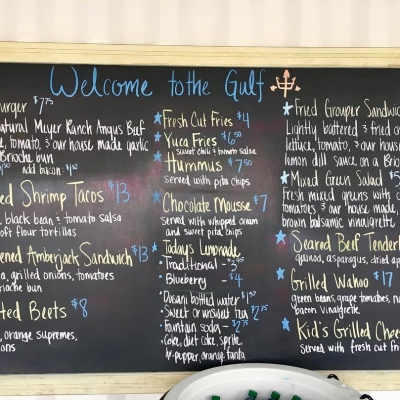 Welcome to the Gulf
urger $7.75
atural Meyer Ranch Angus Beef
e, tomato, & our house made garlic
Brioche bun
add bacon
ed Shrimp Tacos $13
black bean & tomato salsa
oft flour tortillas
ened Amberjack Sandwich $13
a, grilled onions, tomatoes
rioche bun
ted Beets $8
, orange supremes,
ons
Fresh Cut Fries $4
Yuca Fries $6.50
sweet chili & tomato salsa
Hummus $7.50
Served with pita chips
Chocolate Mousse $7
Served with whipped cream
and sweet pita chips
Todays Lemonade
- Traditional -
- Blueberry - $4
Dasani bottled water
Sweet or unsweet tea
Fountain soda -
Coke, diet coke, sprite,
dr. pepper, orange fanta
Fried Grouper Sandwic
Lightly battered & fried or
lettuce, tomato, & our house
lemon dill sauce on a Brioc
Mixed Green Salad
Fresh mixed greens with c
tomatoes & our house made,
brown balsamic vinaigrette
Seared Beef Tenderl
quinoa, asparagus, dried ap
Grilled Wahoo $17
green beans, grape tomatoes, n
bacon vinaigrette
Kid's Grilled Chee
Served with fresh cut fri